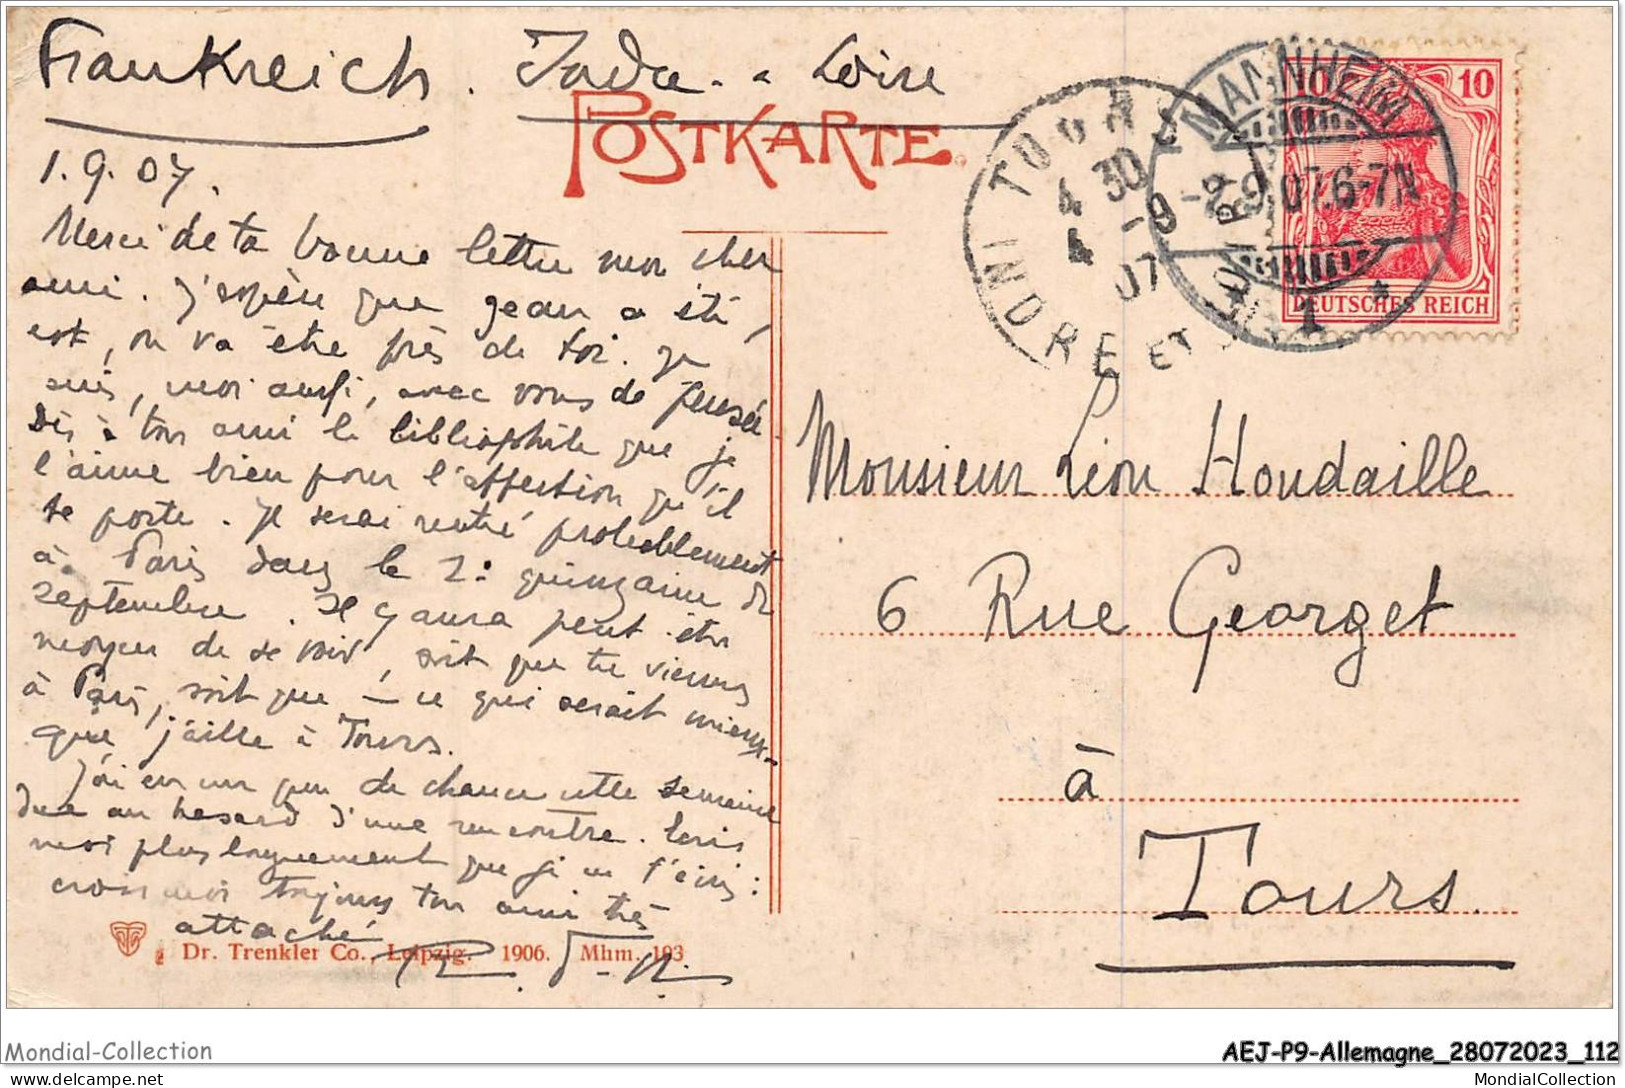 Frankreich. Indre-&-Loire
POSTKARTE.
TOURS
INDRE ET LOIRE
4 30
4 -9
07
MANNHEIM
2.9.07.6-7N
* 1 *
10 10
DEUTSCHES REICH
1.9.07.
Merci de ta bonne lettre mon cher
ami. J'espère que Jean a été,
est, ou va être près de toi. Je
suis, moi aussi, avec vous de pensée.
Dis à ton ami le bibliophile que je
l'aime bien pour l'affection qu'il
te porte. Je serai rentré probablement
à Paris dans le 2e quinzaine de
septembre. Il y aura peut être
moyen de se voir, soit que tu viennes
à Paris, soit que - ce qui serait mieux -
que j'aille à Tours.
J'ai eu un peu de chance cette semaine
due au hasard d'une rencontre.
moi plus longuement que je ne t'écris:
crois moi toujours ton ami très
attaché
Monsieur Léon Houdaille
6 Rue Georget
à
Tours.
Dr. Trenkler Co., Leipzig. 1906. Mhm. 193
Mondial-Collection
AEJ-P9-Allemagne_28072023_112
delcampe.net
MondialCollection